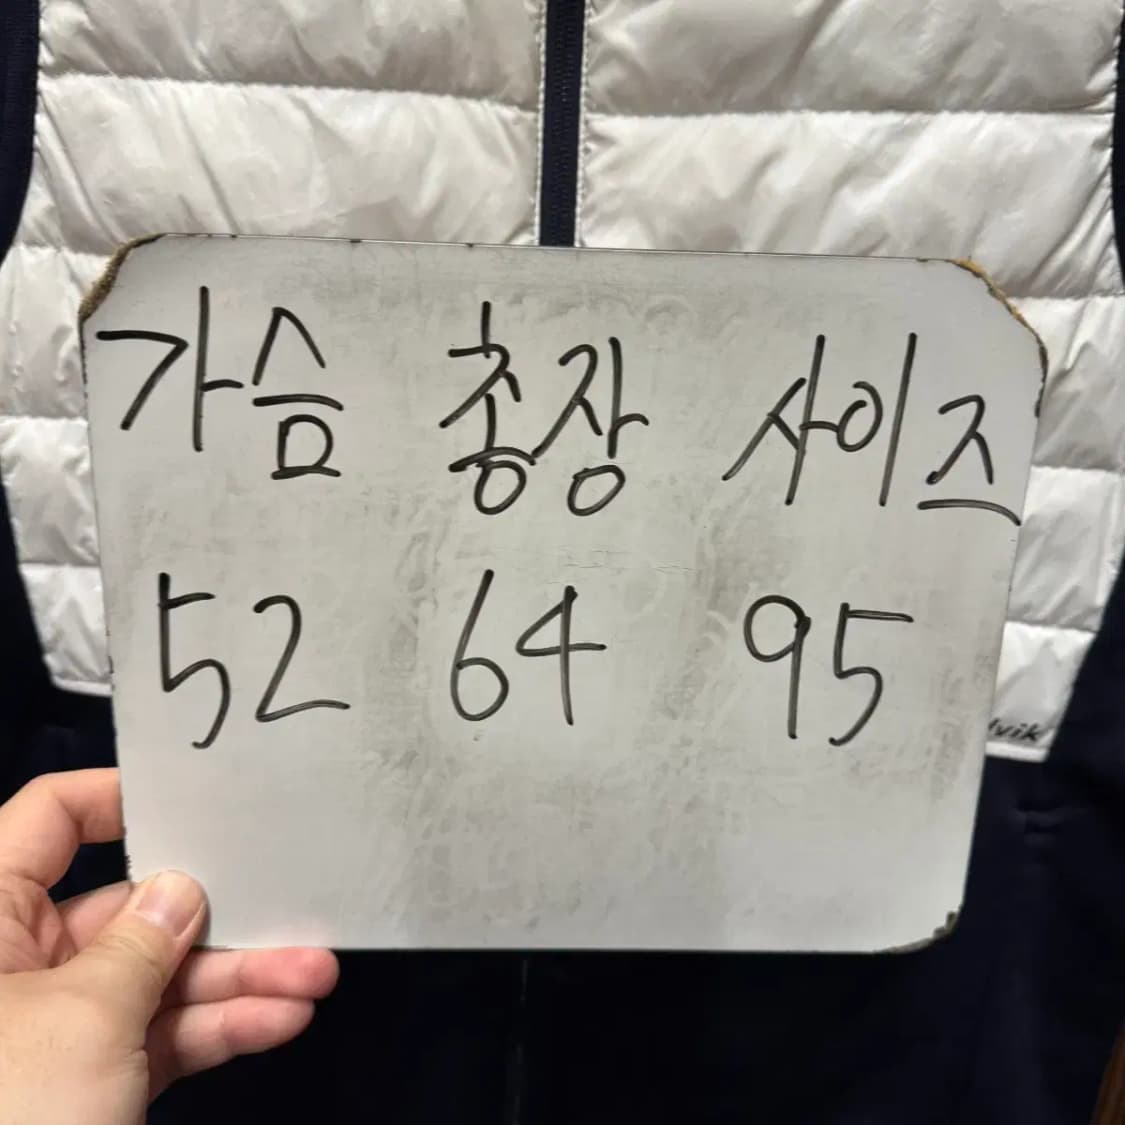 가슴 총장 사이즈
52 64 95